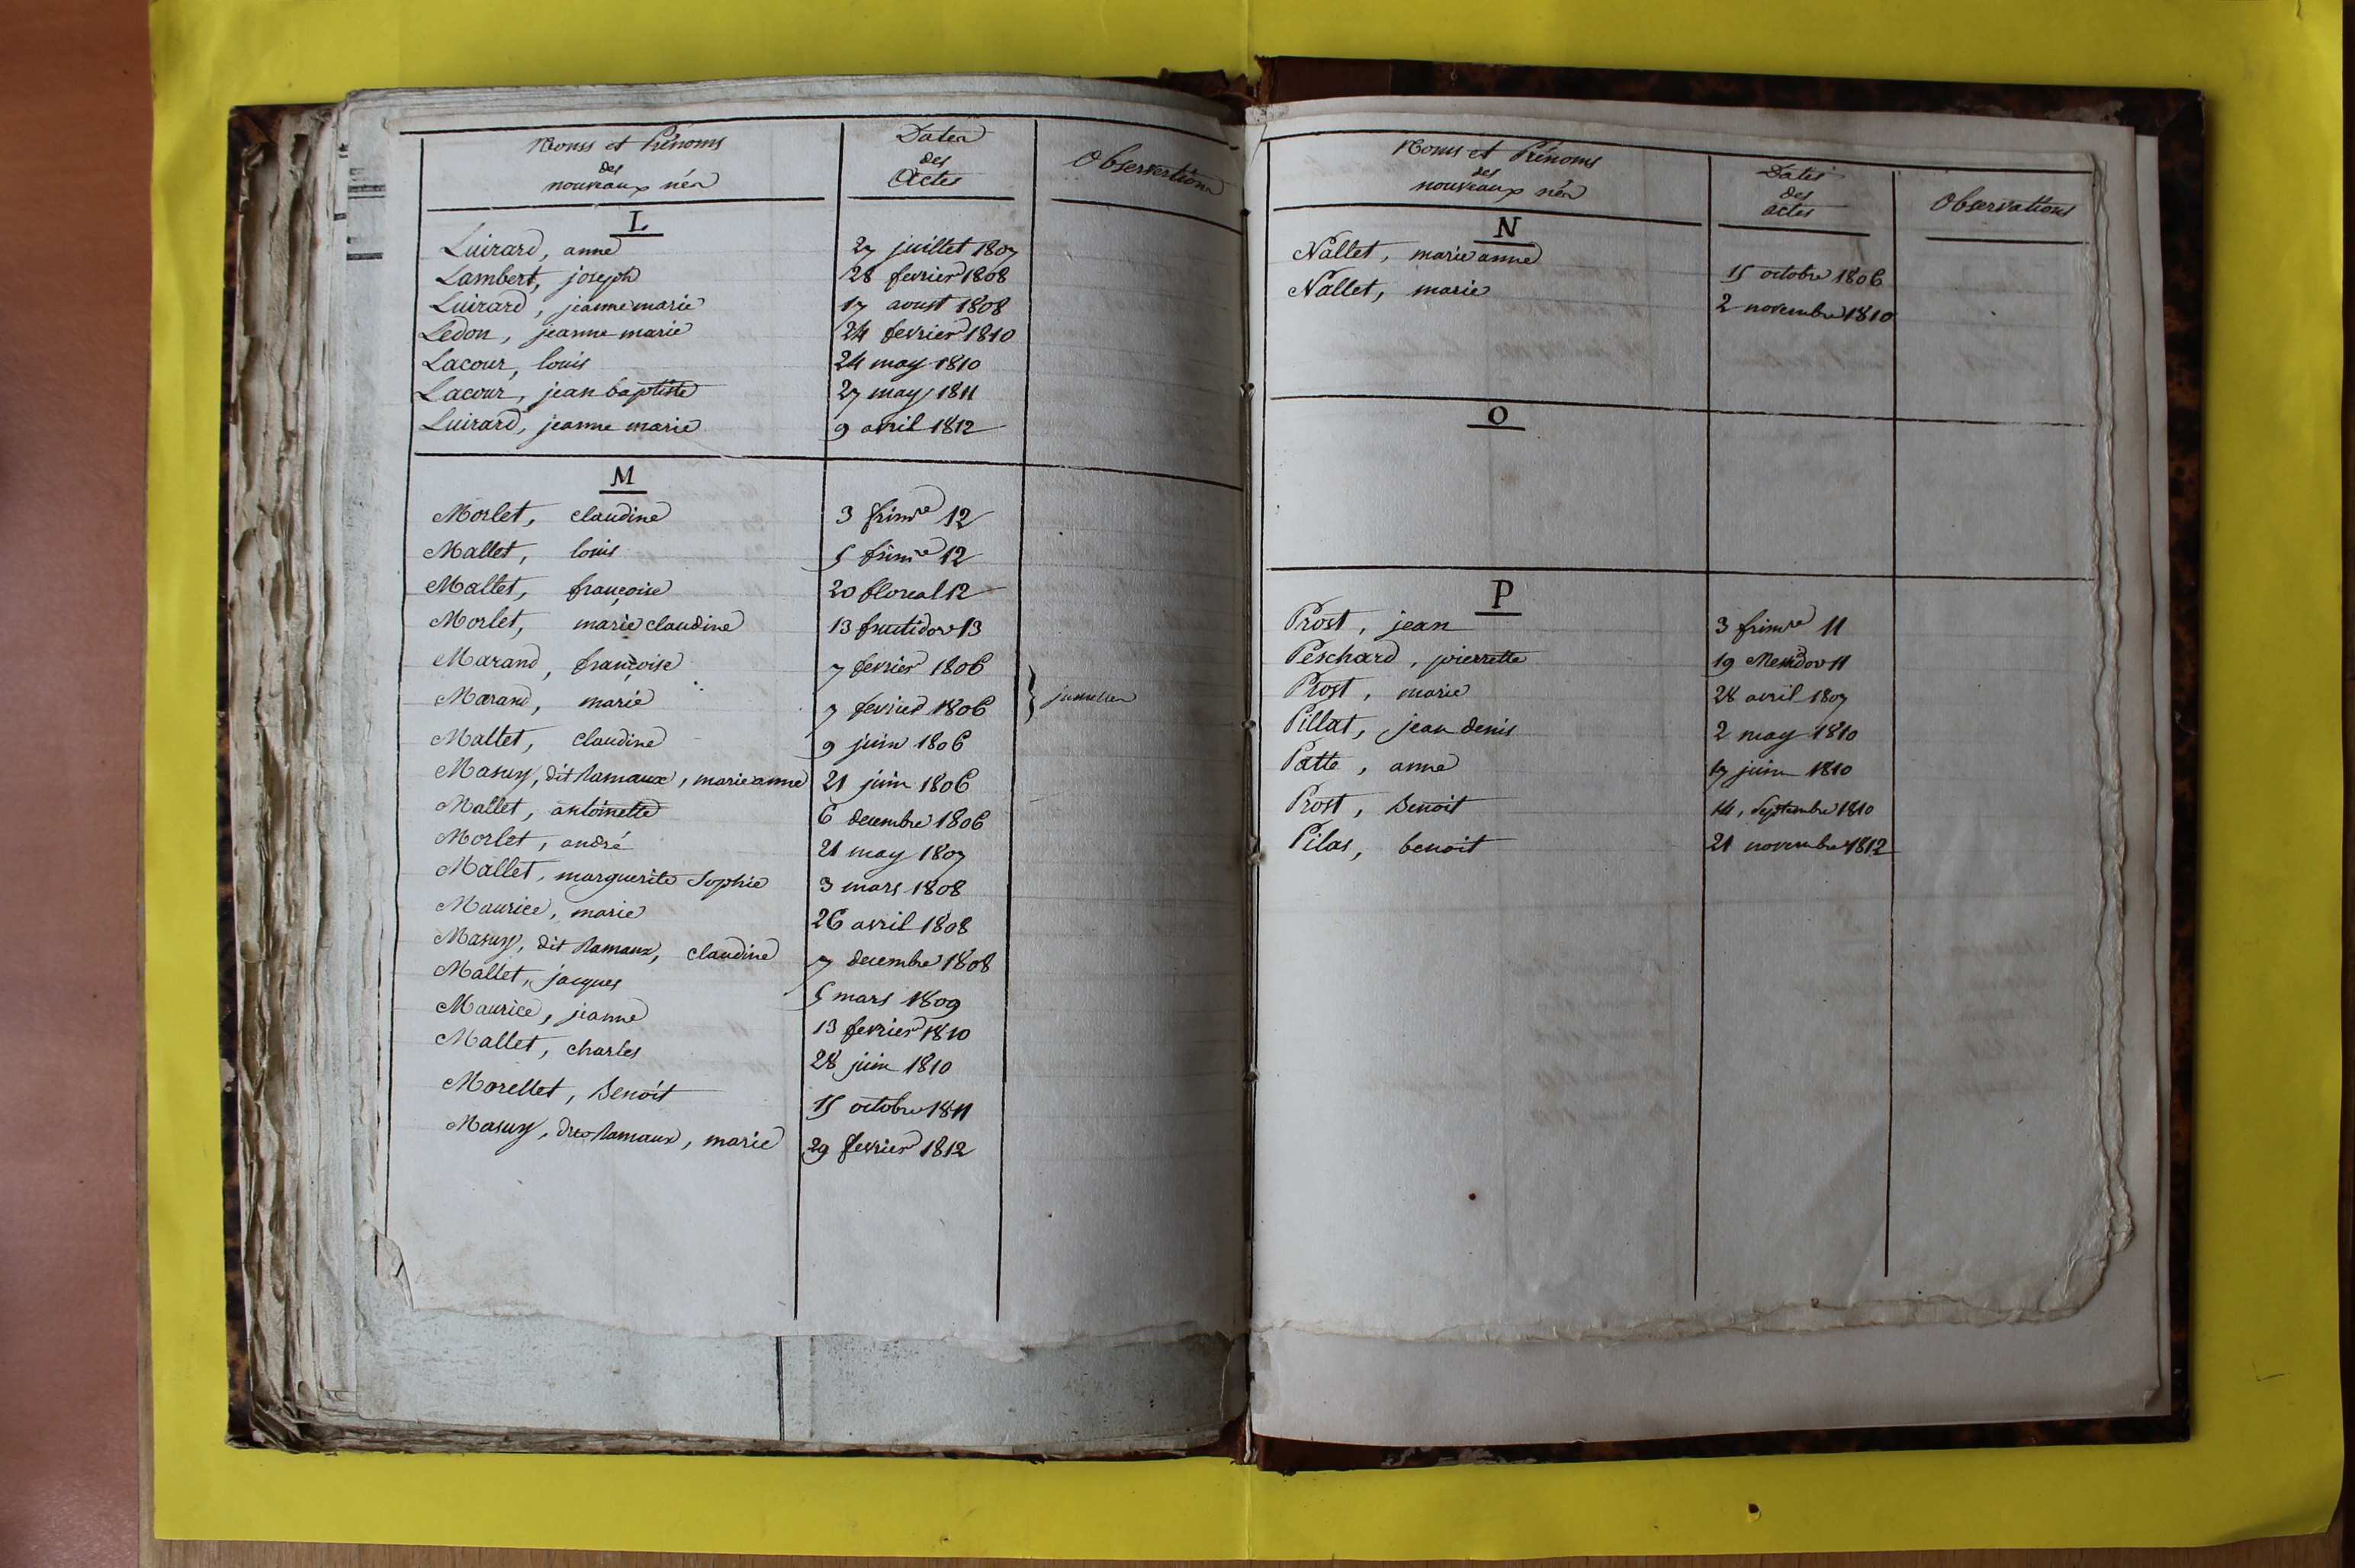 Noms et Prénoms
des
nouveaux nés
Dates
des
Actes
Observations
L
Luirard, anne 27 juillet 1807
Lambert, joseph 28 fevrier 1808
Luirard, jeanne marie 17 aoust 1808
Ledon, jeanne marie 24 fevrier 1810
Lacour, louis 24 may 1810
Lacour, jean baptiste 27 may 1811
Luirard, jeanne marie 9 avril 1812
M
Morlet, claudine 3 frimre 12
Mallet, louis 5 frimre 12
Mallet, françoise 20 floreal 12
Morlet, marie claudine 13 fructidor 13
Marand, françoise 7 fevrier 1806
Marand, marie 7 fevrier 1806 } jumelles
Mallet, claudine 9 juin 1806
Masuy, dit Ramaux, marie anne 21 juin 1806
Mallet, antoinette 6 decembre 1806
Morlet, andré 21 may 1807
Mallet, marguerite Sophie 3 mars 1808
Maurice, marie 26 avril 1808
Masuy, dit Ramaux, claudine 7 decembre 1808
Mallet, jacques 5 mars 1809
Maurice, jeanne 13 fevrier 1810
Mallet, charles 28 juin 1810
Morellet, Benoit 15 octobre 1811
Masuy, Ramaux, marie 29 fevrier 1812
Noms et Prénoms
des
nouveaux nés
Dates
des
actes
Observations
N
Nallet, marie anne 15 octobre 1806
Nallet, marie 2 novembre 1810
O
P
Prost, jean 3 frimre 11
Peschard, pierrette 19 Messidor 11
Prost, marie 28 avril 1807
Pillat, jean denis 2 may 1810
Patte, anne 17 juin 1810
Prost, Benoit 14, Septembre 1810
Pilas, benoit 21 novembre 1812